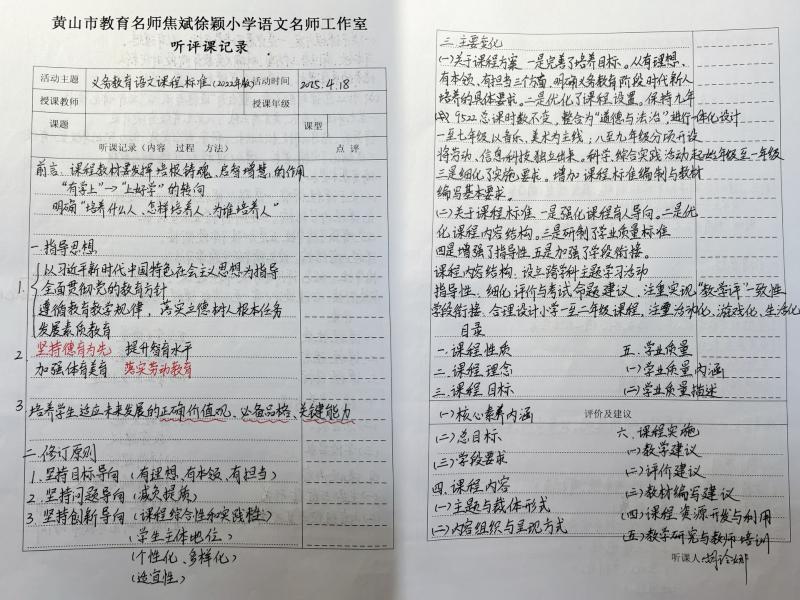 黄山市教育名师焦斌徐颖小学语文名师工作室
听评课记录
活动主题 义务教育语文课程标准(2022年版) 活动时间 2025.4.18
授课教师 授课年级
课题 课型
听课记录（内容 过程 方法） 点 评
前言:课程教材要发挥培根铸魂、启智增慧的作用
"有学上"→"上好学"的转向
明确"培养什么人、怎样培养人、为谁培养人"
一.指导思想
1. 以习近平新时代中国特色社会主义思想为指导
全面贯彻党的教育方针
遵循教育教学规律，落实立德树人根本任务
发展素质教育
2. 坚持德育为先 提升智育水平
加强体育美育 落实劳动教育
3. 培养学生适应未来发展的正确价值观、必备品格、关键能力
二.修订原则
1.坚持目标导向(有理想、有本领、有担当)
2.坚持问题导向(减负提质)
3.坚持创新导向(课程综合性和实践性)
(学生主体地位)
(个性化、多样化)
(适宜性)
三.主要变化
(一)关于课程方案 一是完善了培养目标。从有理想、
有本领、有担当三个方面,明确义务教育阶段时代新人
培养的具体要求。二是优化了课程设置。保持九年
9522总课时数不变。整合为"道德与法治"进行一体化设计
一至七年级以音乐、美术为主线；八至九年级分项开设
将劳动、信息科技独立出来。科学、综合实践活动起始年级至一年级
三是细化了实施要求。增加课程标准编制与教材
编写基本要求。
(二)关于课程标准 一是强化课程育人导向。二是优
化课程内容结构。三是研制了学业质量标准
四是增强了指导性 五是加强了学段衔接。
课程内容结构、设立跨学科主题学习活动
指导性、细化评价与考试命题建议、注重实现"教学评"一致性
学段衔接、合理设计小学一至二年级课程,注重活动化、游戏化、生活化
目录
一.课程性质 五、学业质量
二.课程理念 (一)学业质量内涵
三.课程目标 (二)学业质量描述
(一)核心素养内涵 评价及建议
(二)总目标 六.课程实施
(三)学段要求 (一)教学建议
四.课程内容 (二)评价建议
(一)主题与载体形式 (三)教材编写建议
(二)内容组织与呈现方式 (四)课程资源开发与利用
(五)教学研究与教师培训
听课人: